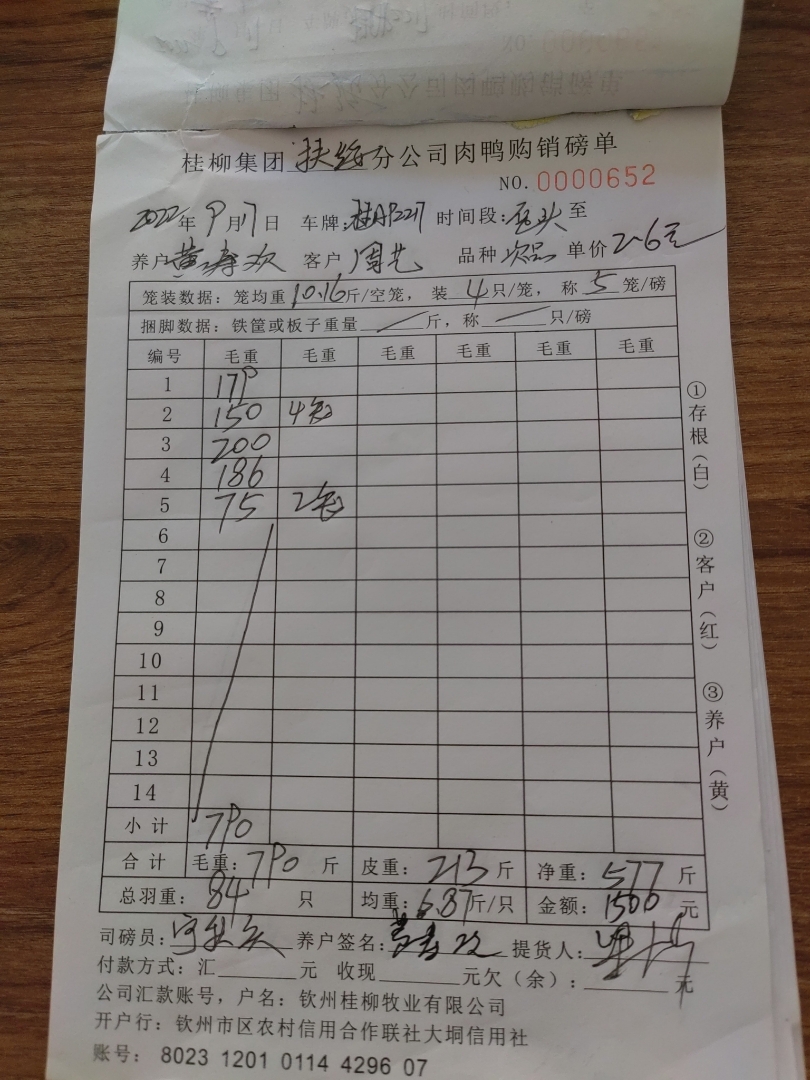 桂柳集团扶绥分公司肉鸭购销磅单
NO.0000652
2022年9月17日 车牌: 时间段: 至
养户 黄寿欢 客户 周艺 品种 次品 单价 2.6元
笼装数据：笼均重10.16斤/空笼，装4只/笼，称5笼/磅
捆脚数据：铁筐或板子重量 斤，称 只/磅
编号 毛重 毛重 毛重 毛重 毛重 毛重
1 179
2 150 4笼
3 200
4 186
5 75 2笼
6
7
8
9
10
11
12
13
14
小计 790
合计 毛重：790斤 皮重：213斤 净重：577斤
总羽重：84只 均重：6.87斤/只 金额：1500元
司磅员： 养户签名： 提货人：
付款方式：汇 元 收现 元欠（余）： 元
公司汇款账号，户名：钦州桂柳牧业有限公司
开户行：钦州市区农村信用合作联社大垌信用社
账号：8023 1201 0114 4296 07
①存根（白）
②客户（红）
③养户（黄）